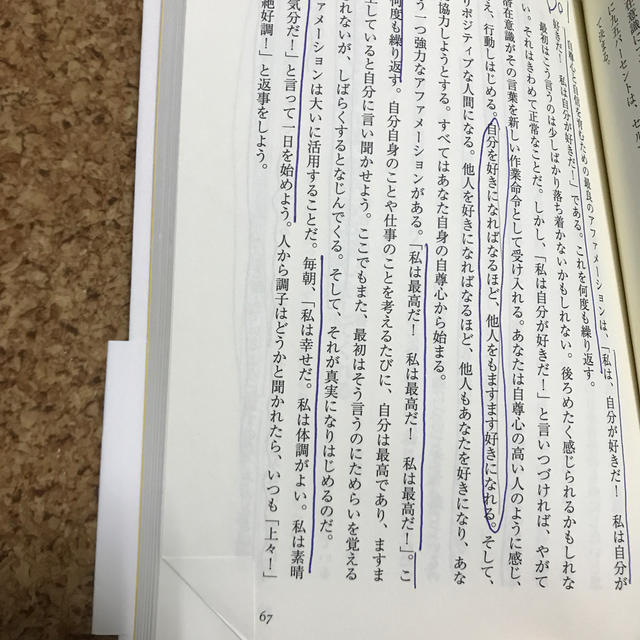 在意識
に九五パーセントは、セ
て決まる。
自尊心と自信を育むための最良のアファメーションは、「私は、自分が好きだ！　私は自分が
好きだ！　私は自分が好きだ！」である。これを何度も繰り返す。
最初はこう言うのは少しばかり落ち着かないかもしれない。後ろめたく感じられるかもしれな
い。それはきわめて正常なことだ。しかし、「私は自分が好きだ！」と言いつづければ、やがて
潜在意識がその言葉を新しい作業命令として受け入れる。あなたは自尊心の高い人のように感じ、
え、行動しはじめる。自分を好きになればなるほど、他人をもますます好きになれる。そして、
りポジティブな人間になる。他人を好きになればなるほど、他人もあなたを好きになり、あな
協力しようとする。すべてはあなた自身の自尊心から始まる。
う一つ強力なアファメーションがある。「私は最高だ！　私は最高だ！　私は最高だ！」。こ
何度も繰り返す。自分自身のことや仕事のことを考えるたびに、自分は最高であり、ますま
していると自分に言い聞かせよう。ここでもまた、最初はそう言うのにためらいを覚える
れないが、しばらくするとなじんでくる。そして、それが真実になりはじめるのだ。
ファメーションは大いに活用することだ。毎朝、「私は幸せだ。私は体調がよい。私は素晴
気分だ！」と言って一日を始めよう。人から調子はどうかと聞かれたら、いつも「上々！」
絶好調！」と返事をしよう。
67